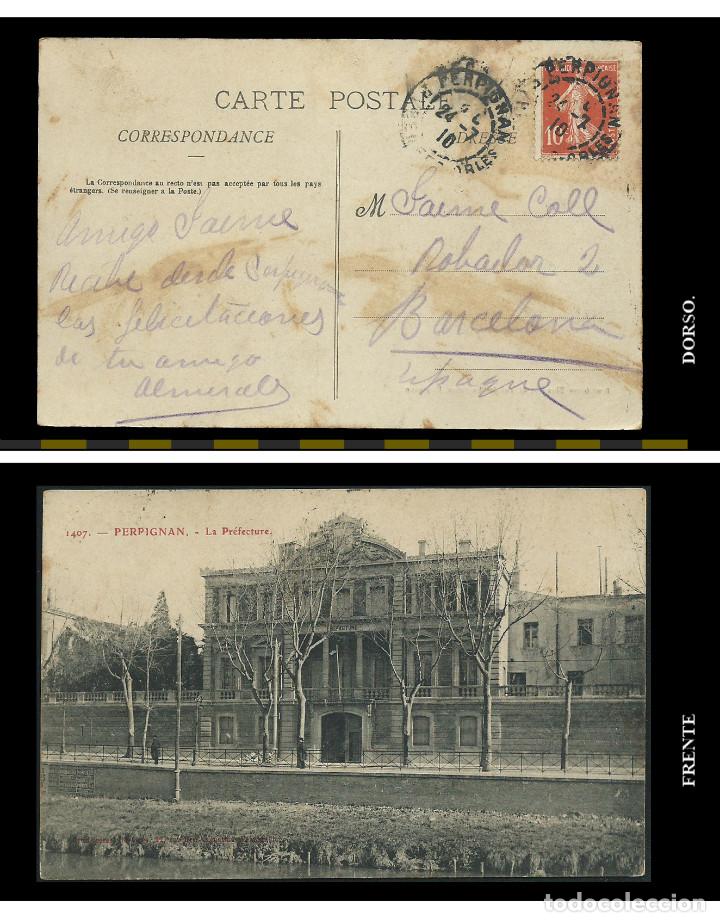 CARTE POSTALE
CORRESPONDANCE
ADRESSE
La Correspondance au recto n'est pas acceptée par tous les pays
étrangers. (Se renseigner a la Poste.)
PERPIGNAN
24 - 7
10
PERPIGNAN
24 - 7
10
10
M Jaime Coll
Robador 2
Barcelona
Espagne
Amigo Jaime
Recibe desde Perpignan
las felicitaciones
de tu amigo
DORSO.
1407. — PERPIGNAN. - La Préfecture.
FRENTE
todocoleccion